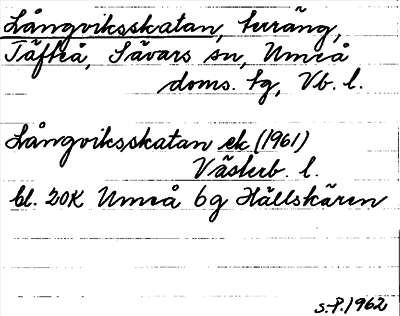 Långviksskatan, terräng,
Täfteå, Sävars sn, Umeå
doms. tg, Vb. l.
Långviksskatan ek (1961)
Västerb. l.
bl. 20K Umeå 6g Hällskären
S.-P. 1962